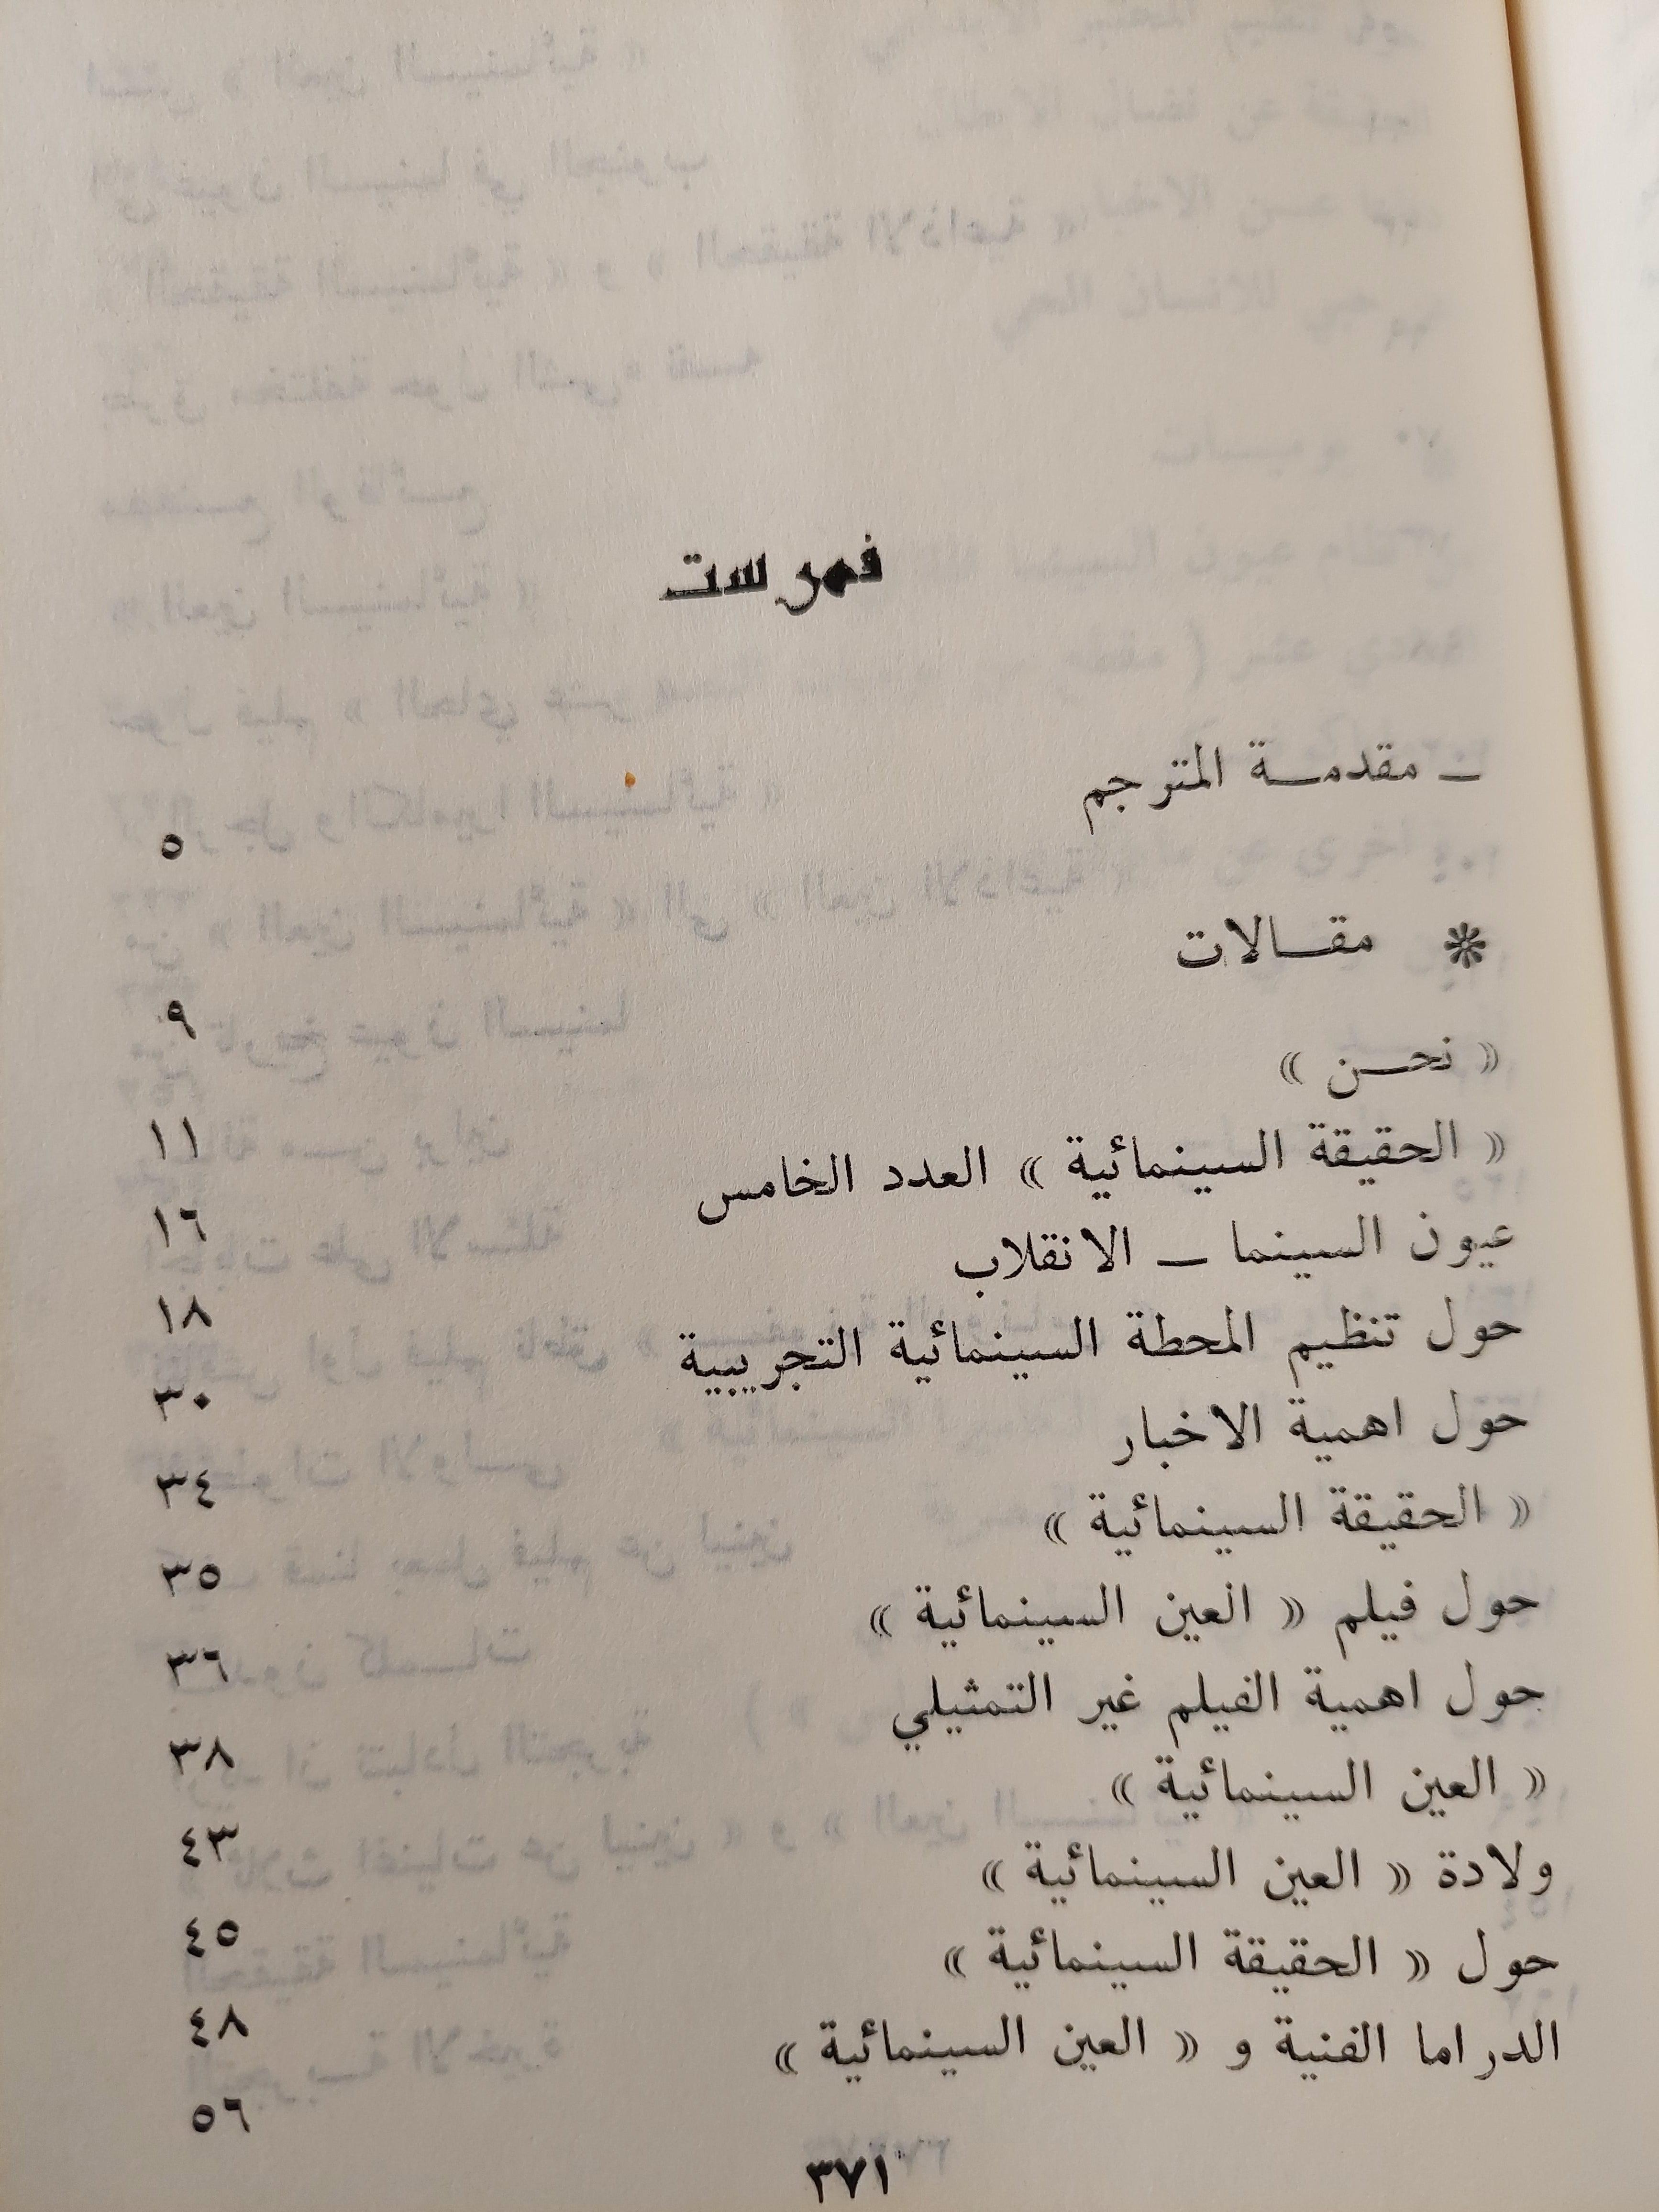 فهرست
ـ مقدمة المترجم ٥
* مقالات ٩
« نحن » ١١
« الحقيقة السينمائية » العدد الخامس ١٦
عيون السينما ـ الانقلاب ١٨
حول تنظيم المحطة السينمائية التجريبية ٣٠
حول اهمية الاخبار ٣٤
« الحقيقة السينمائية » ٣٥
حول فيلم « العين السينمائية » ٣٦
حول اهمية الفيلم غير التمثيلي ٣٨
« العين السينمائية » ٤٣
ولادة « العين السينمائية » ٤٥
حول « الحقيقة السينمائية » ٤٨
الدراما الفنية و « العين السينمائية » ٥٦
٣٧١